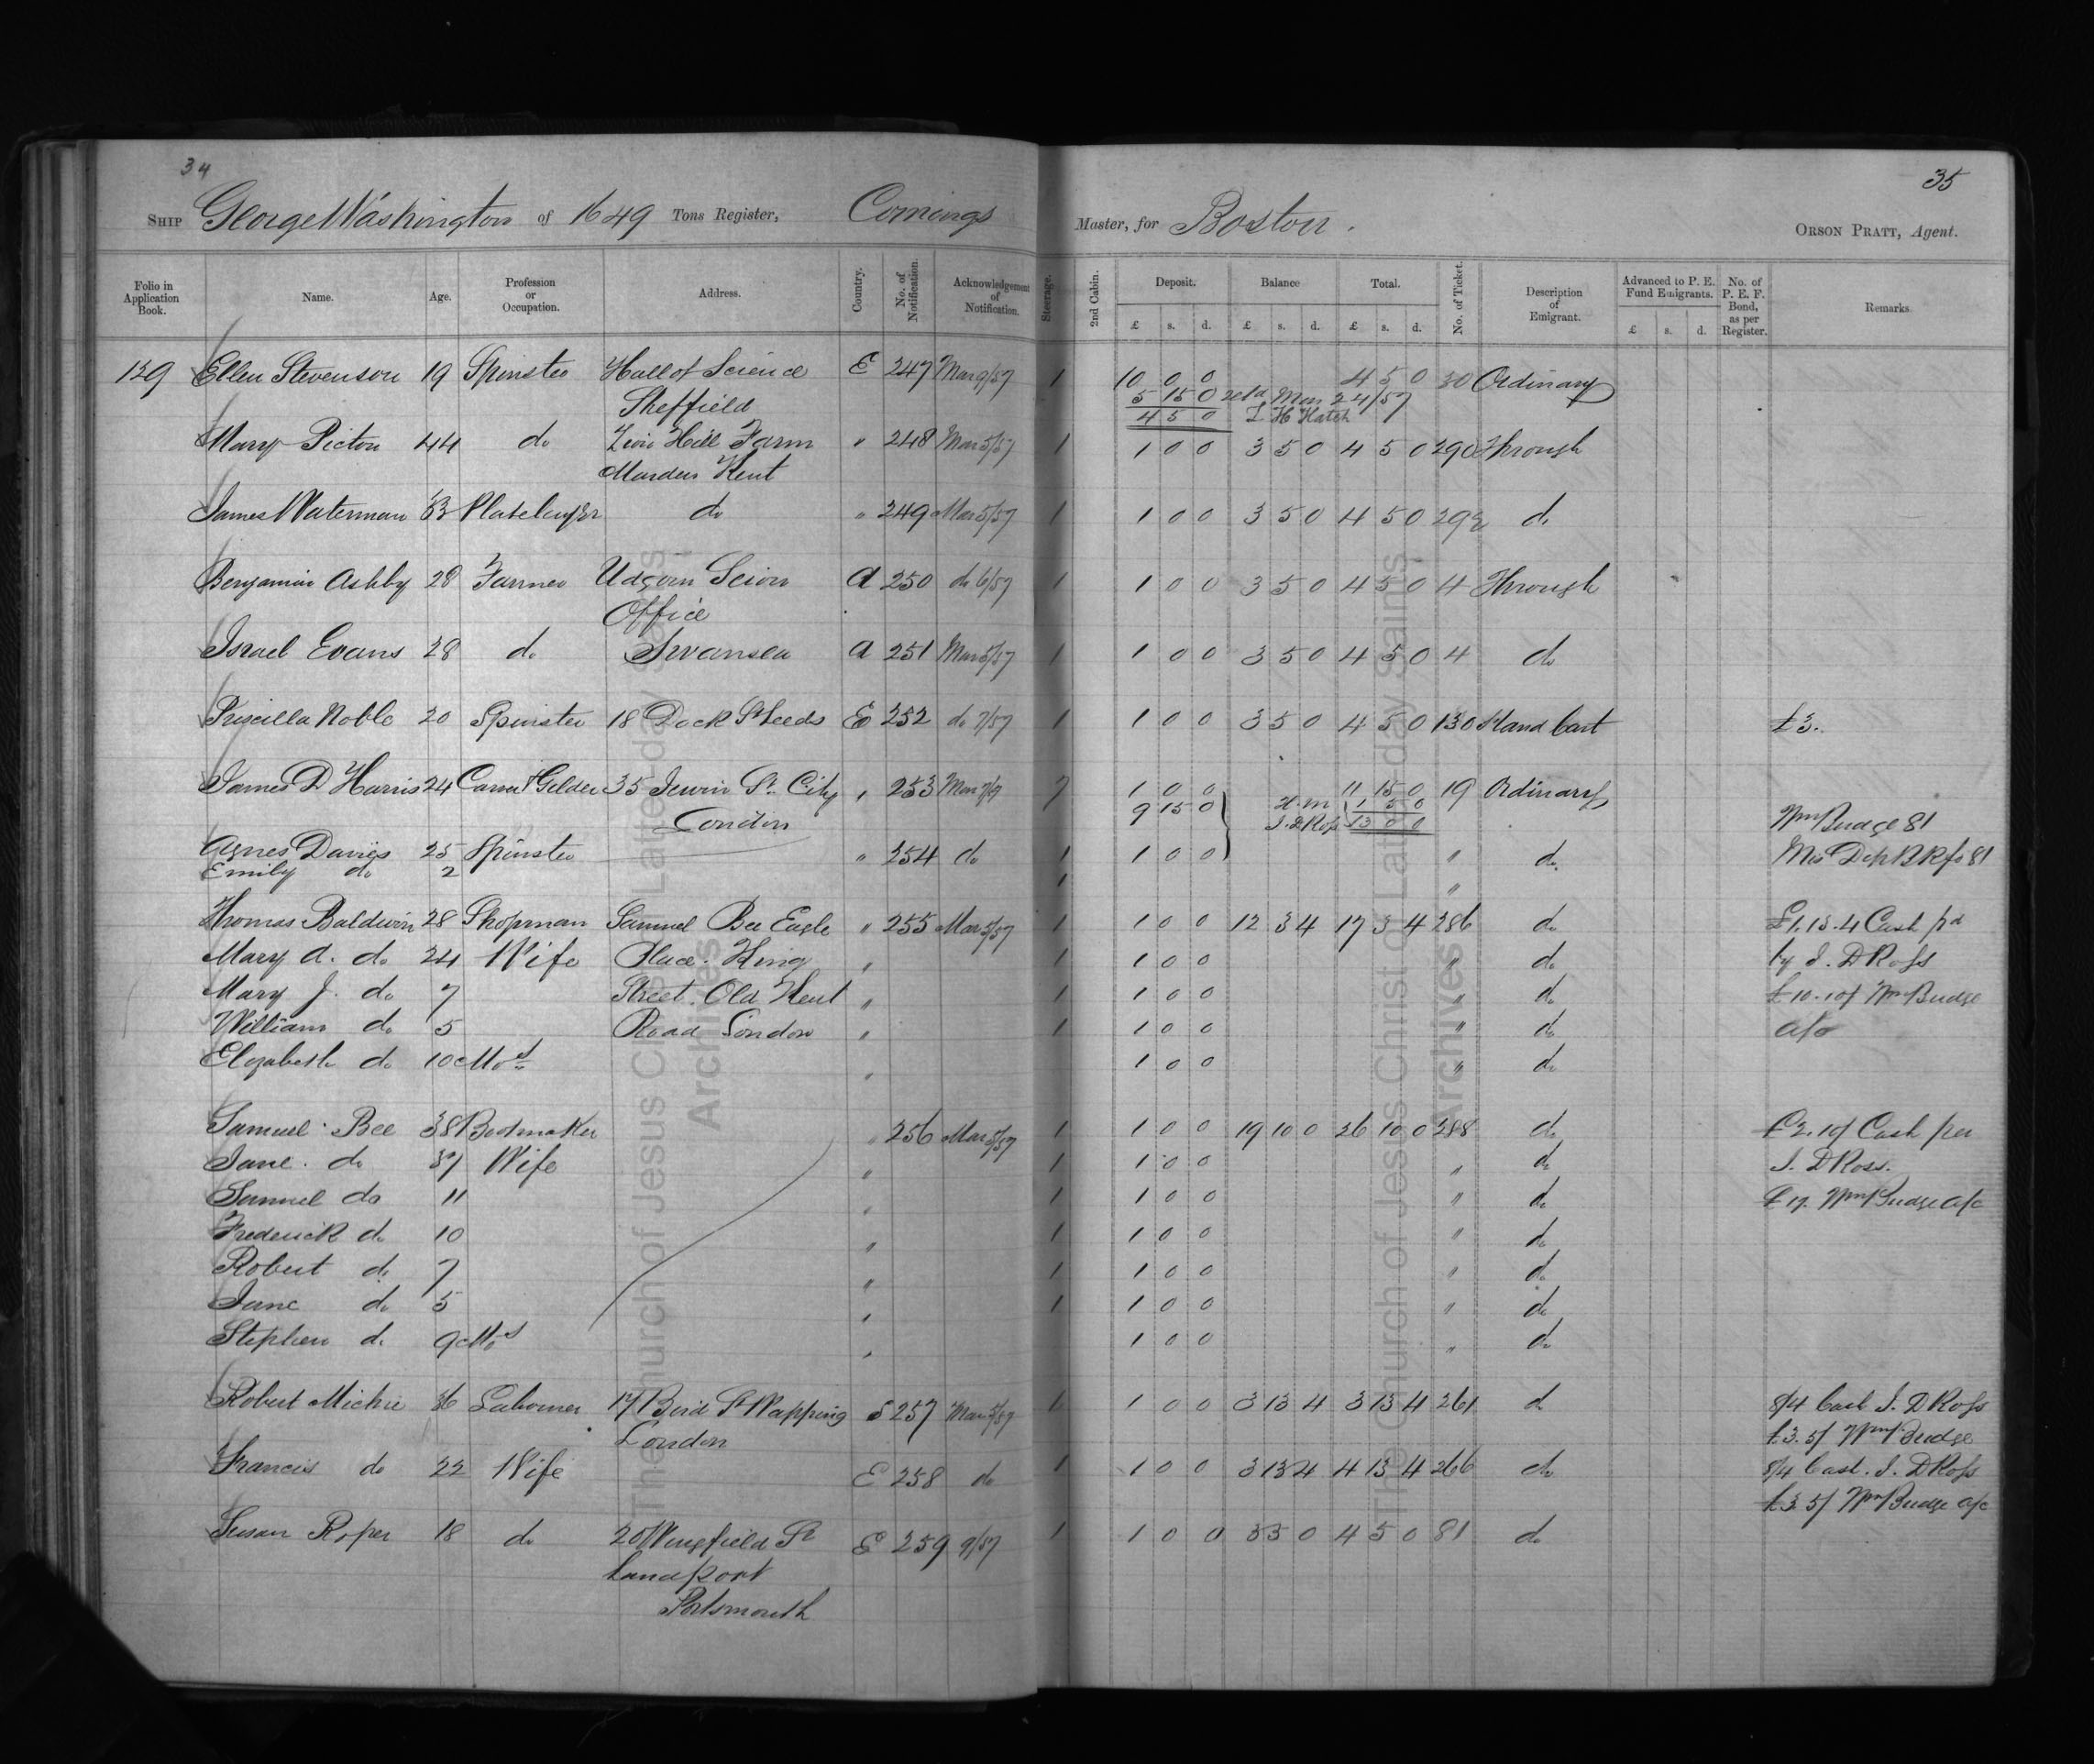 34
35
SHIP George Washington of 1649 Tons Register, Comings Master, for Boston. ORSON PRATT, Agent.
Folio in Application Book. Name. Age. Profession or Occupation. Address. Country. No. of Notification. Acknowledgement of Notification. Steerage. 2nd Cabin. Deposit. £ s. d. Balance £ s. d. Total. £ s. d. No. of Ticket. Description of Emigrant. Advanced to P. E. Fund Emigrants. £ s. d. No. of P. E. F. Bond, as per Register. Remarks
129 Ellen Stevenson 19 Spinster Hall of Science E 247 Mar 9/57 1 10 0 0 4 5 0 30 Ordinary
Sheffield 5 15 0 Mar 24/57
4 5 0 L H Hatch
Mary Picton 44 do Hill Farm " 248 Mar 5/57 1 1 0 0 3 5 0 4 5 0 290 Through
Marden Kent
James Waterman Platelayer do " 249 Mar 5/57 1 1 0 0 3 5 0 4 5 0 292 do
Benjamin Ashby 28 Farmer Udgorn Seion A 250 do 6/57 1 1 0 0 3 5 0 4 5 0 4 Through
Office
Israel Evans 28 do Swansea A 251 Mar 5/57 1 1 0 0 3 5 0 4 5 0 4 do
Priscilla Noble 20 Spinster 18 Dock St Leeds E 252 do 7/57 1 1 0 0 3 5 0 4 5 0 130 Hand Cart £3.
James D Harris 24 Carver & Gilder 35 Jewin St. City " 253 Mar 1 0 0 11 15 0 19 Ordinary
London 9 15 0 1 5 0
J. D Ross 13 0 0 Wm Budge 81
Agnes Davies 25 Spinster " 254 do 1 1 0 0 " do
Emily do 2 1 "
Thomas Baldwin 28 Shopman Samuel Bee Eagle " 255 Mar 5/57 1 1 0 0 12 3 4 17 3 4 286 do £1.13.4 Cash pd
Mary A. do 24 Wife Place. King " 1 1 0 0 " do by J. D Ross
Mary J. do 7 Street. Old Kent " 1 1 0 0 " do £10.10/ Wm Budge
William do 5 Road London " 1 1 0 0 " do a/c
Elizabeth do 10 Mos " 1 0 0 " do
Samuel Bee 38 Bootmaker " 256 Mar 5/57 1 1 0 0 19 10 0 26 10 0 288 do £2.10/ Cash per
Jane. do 37 Wife " 1 1 0 0 " do J. D Ross.
Samuel do 11 " 1 1 0 0 " do £17. Wm Budge a/c
Frederick do 10 " 1 1 0 0 " do
Robert do 7 " 1 1 0 0 " do
Jane do 5 " 1 1 0 0 " do
Stephen do 9 Mos " 1 0 0 " do
Robert Michie 36 Labourer 17 Bird St Wapping S 257 Mar 5/57 1 1 0 0 3 13 4 3 13 4 261 do 8/4 Cash J. D Ross
London £3.5/ Wm Budge
Francis do 22 Wife E 258 do 1 1 0 0 3 13 4 4 13 4 266 do 8/4 Cash. J. D Ross
£3 5/ Wm Budge a/c
Susan Roper 18 do 20 Wingfield St E 259 9/57 1 1 0 0 3 5 0 4 5 0 81 do
Landport
Portsmouth
The Church of Jesus Christ of Latter-day Saints
Archives
The Church of Jesus Christ of Latter-day Saints
Archives